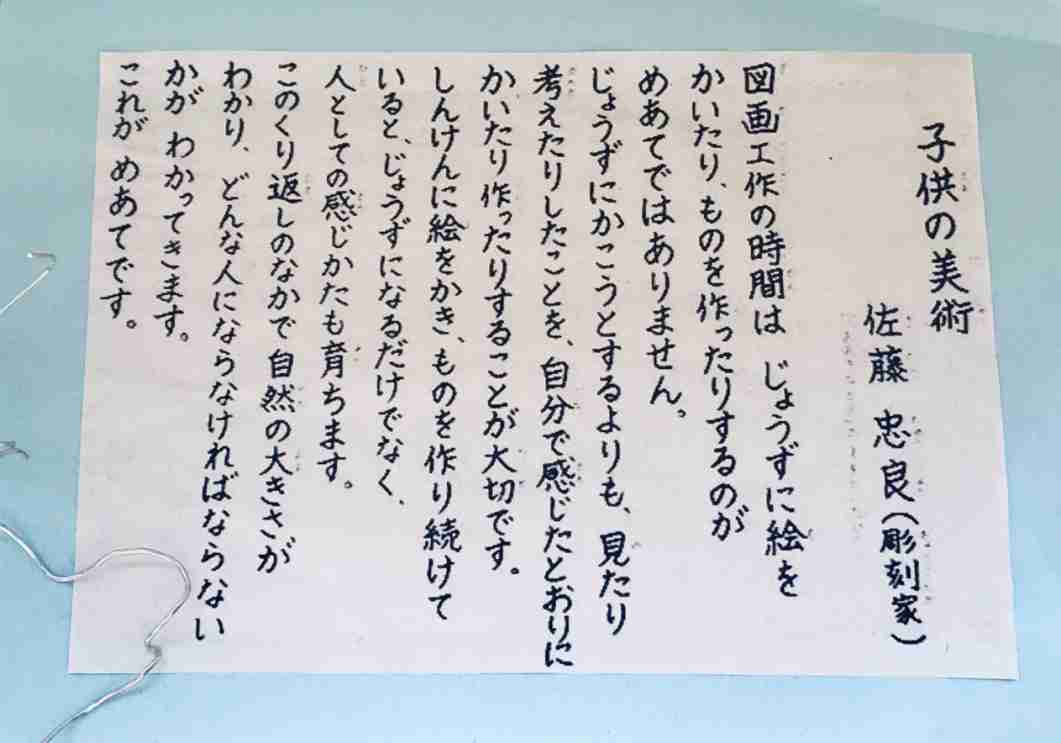 子供の美術
佐藤 忠良(彫刻家)
図画工作の時間は じょうずに絵を
かいたり、ものを作ったりするのが
めあてではありません。
じょうずにかこうとするよりも、見たり
考えたりしたことを、自分で感じたとおりに
かいたり作ったりすることが大切です。
しんけんに絵をかき、ものを作り続けて
いると、じょうずになるだけでなく、
人としての感じかたも育ちます。
このくり返しのなかで自然の大きさが
わかり、どんな人にならなければならない
かが わかってきます。
これが めあてです。